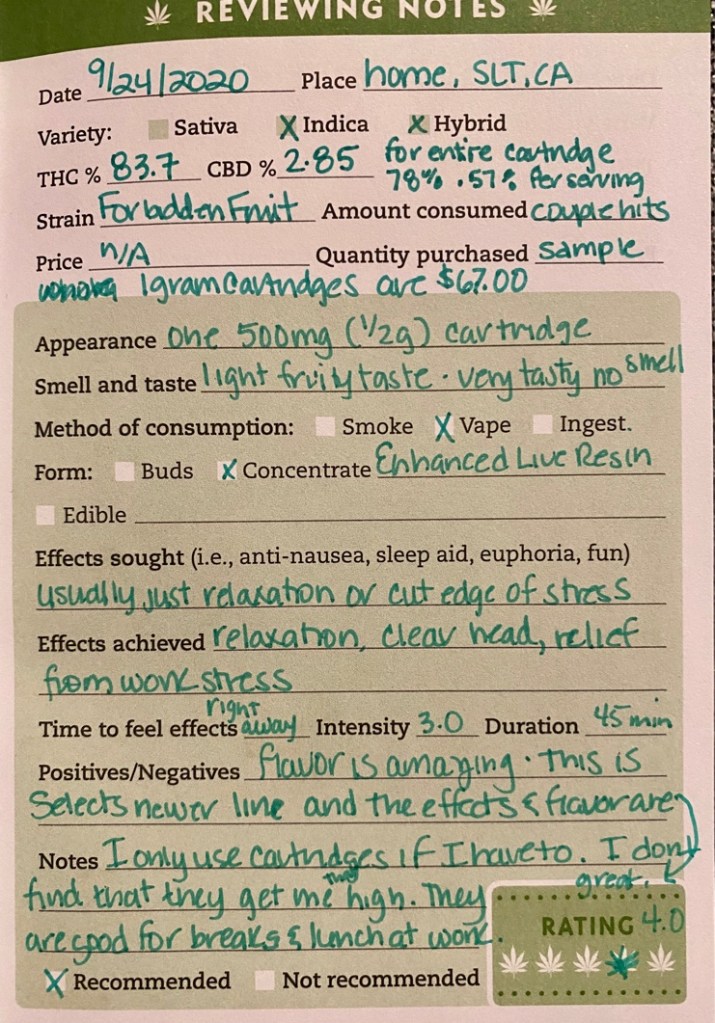 REVIEWING NOTES
Date 9/24/2020 Place home, SLT, CA
Variety: Sativa X Indica X Hybrid
THC % 83.7 CBD % 2.85 for entire cartridge
78% .57% Per serving
Strain Forbidden Fruit Amount consumed couple hits
Price n/A Quantity purchased sample
1 gram cartridges are $67.00
Appearance One 500mg (1/2g) cartridge
Smell and taste light fruity taste. very tasty no smell
Method of consumption: Smoke X Vape Ingest.
Form: Buds X Concentrate Enhanced Live Resin
Edible
Effects sought (i.e., anti-nausea, sleep aid, euphoria, fun)
usually just relaxation or cut edge of stress
Effects achieved relaxation, clear head, relief
from work stress
Time to feel effects right away Intensity 3.0 Duration 45 min
Positives/Negatives flavor is amazing. This is
Selects newer line and the effects & flavor are
great.
Notes I only use cartridges if I have to. I don't
find that they get me that high. They
are good for breaks & lunch at work.
RATING 4.0
X Recommended Not recommended